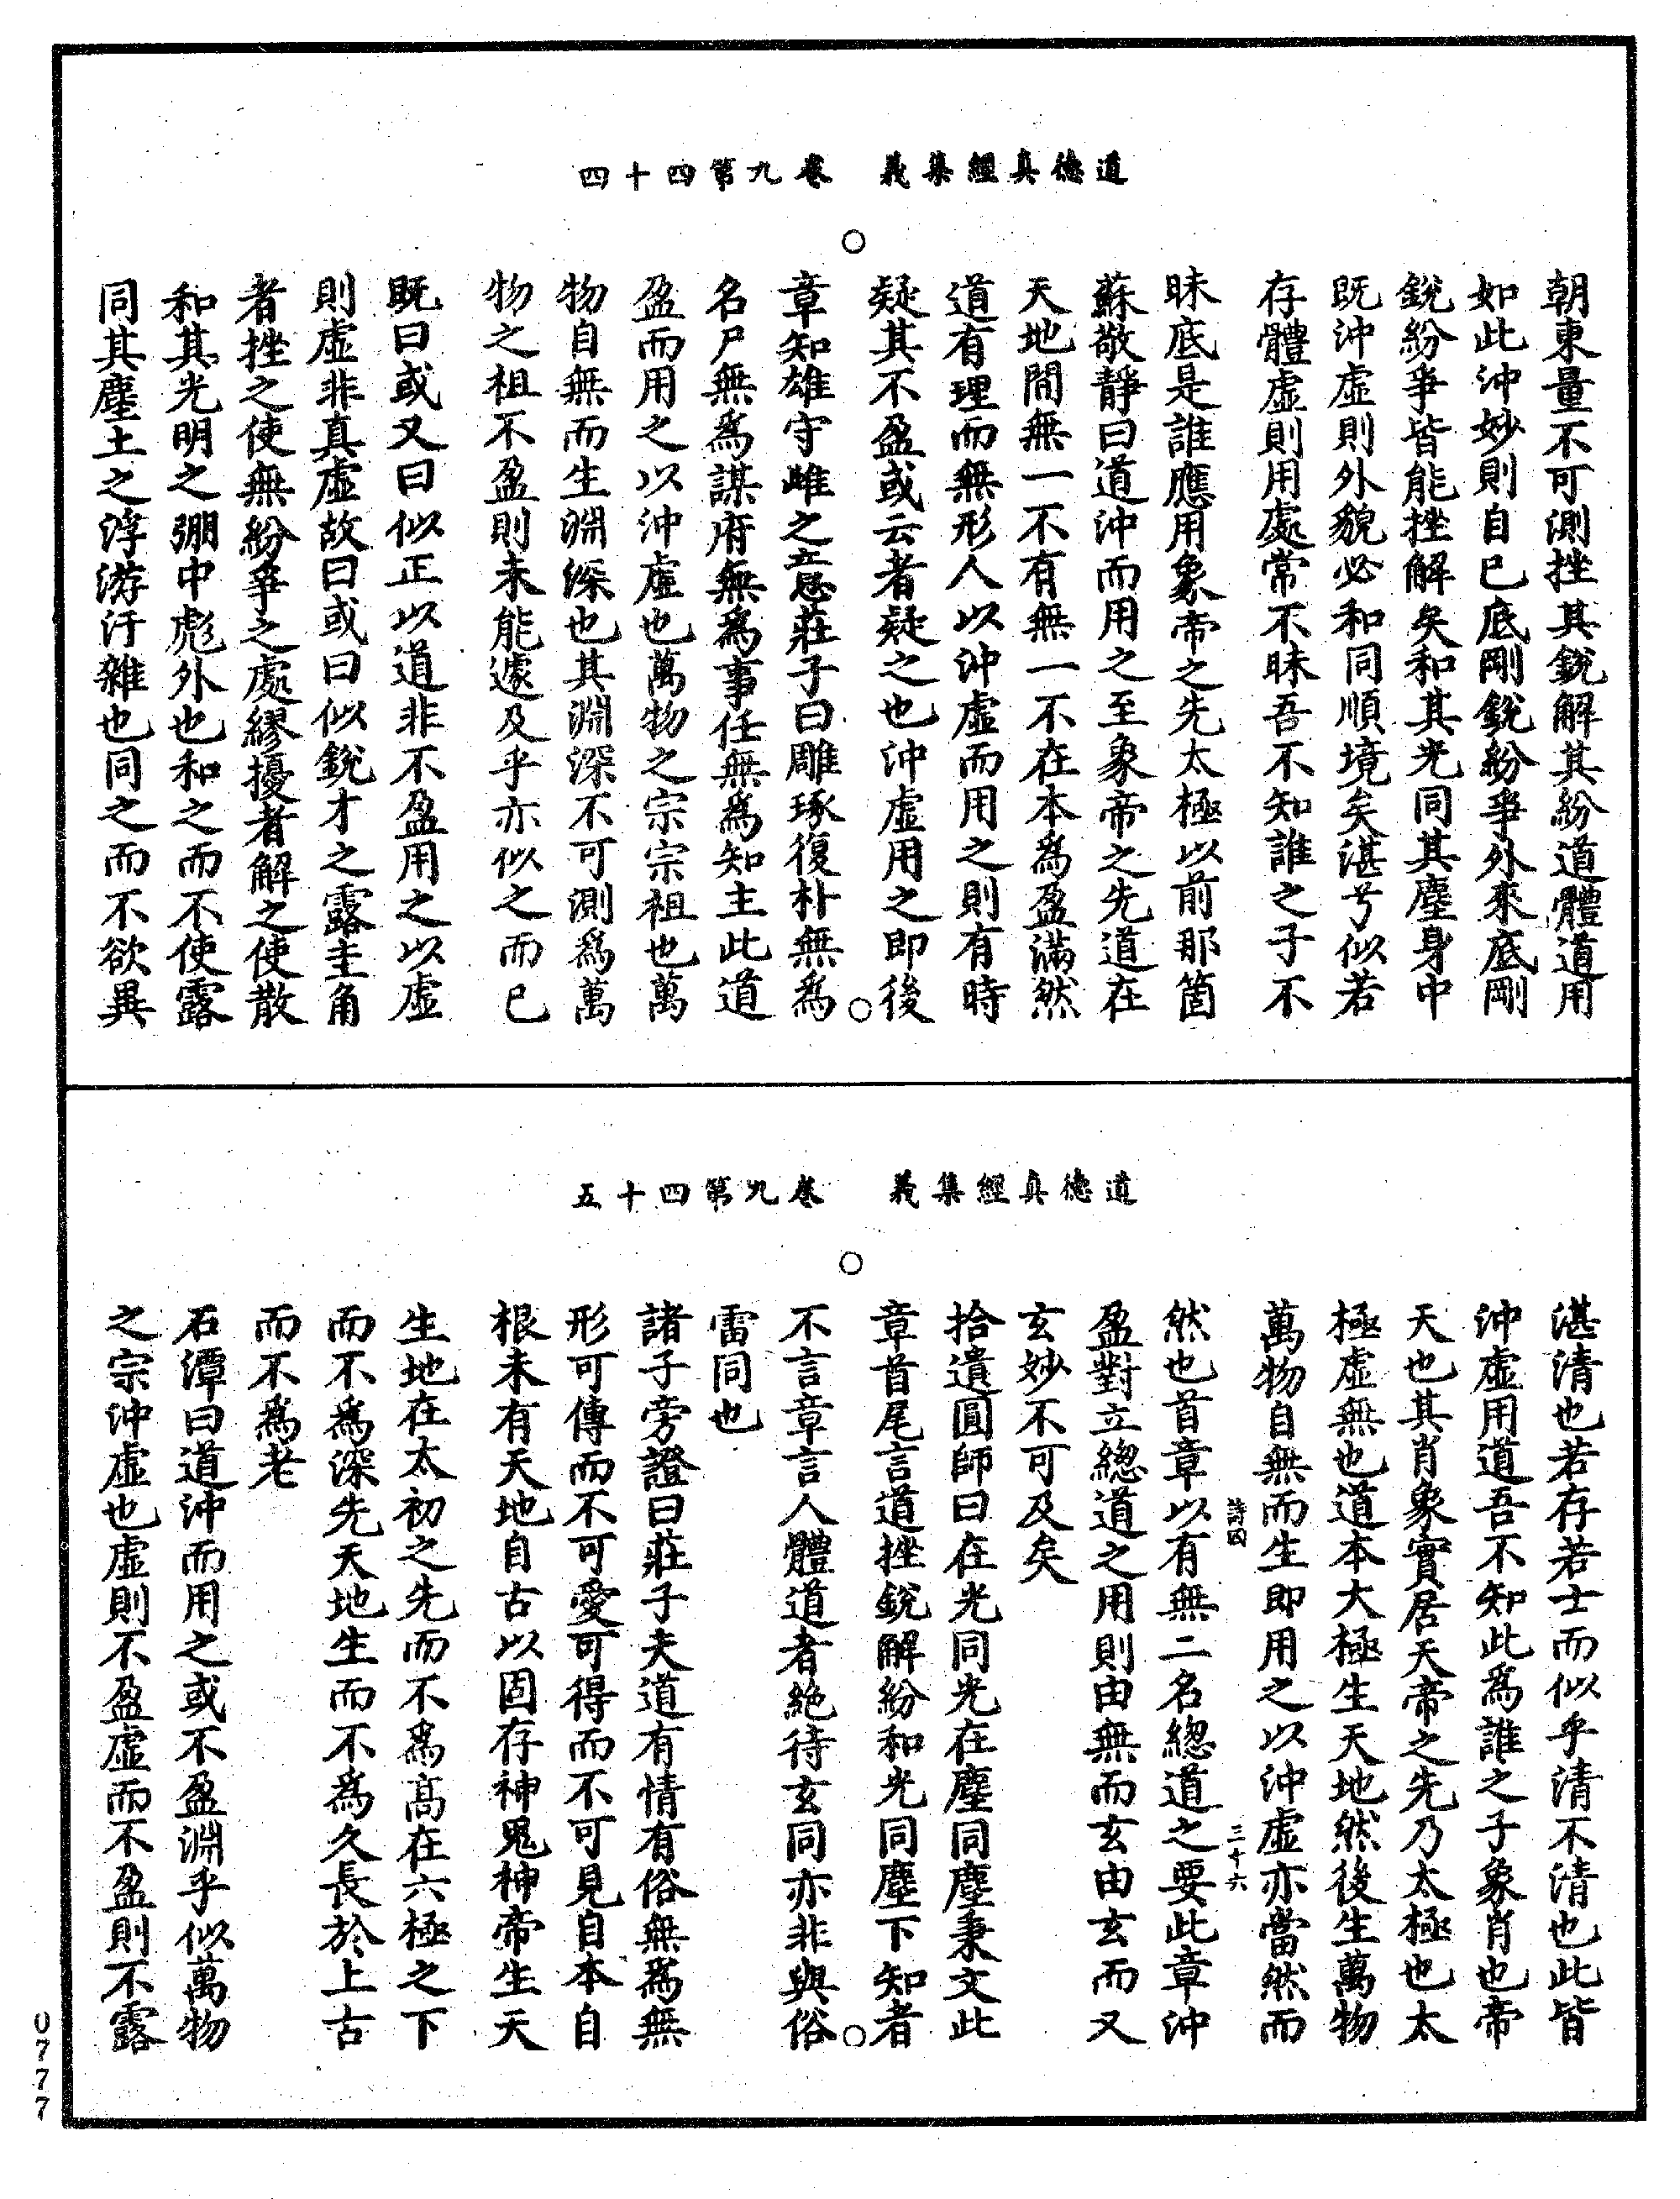 道德真經集義　卷九第四十四
朝東量不可測挫其銳解其紛道體道用
如此沖妙則自己底剛銳紛爭外來底剛
銳紛爭皆能挫解矣和其光同其塵身中
既沖虛則外貌必和同順境矣湛兮似若
存體虛則用處常不昧吾不知誰之子不
昧底是誰應用象帝之先太極以前那箇
蘇敬靜曰道沖而用之至象帝之先道在
天地間無一不有無一不在本為盈滿然
道有理而無形人以沖虛而用之則有時
疑其不盈或云者疑之也沖虛用之即後
章知雄守雌之意莊子曰雕琢復朴無為
名尸無為謀府無為事任無為知主此道
盈而用之以沖虛也萬物之宗宗祖也萬
物自無而生淵深也其淵深不可測為萬
物之祖不盈則未能遽及乎亦似之而已
既曰或又曰似正以道非不盈用之以虛
則虛非真虛故曰或曰似銳才之露圭角
者挫之使無紛爭之處繆擾者解之使散
和其光明之弸中彪外也和之而不使露
同其塵土之浮游汙雜也同之而不欲異
道德真經集義　卷九第四十五
湛清也若存若士而似乎清不清也此皆
沖虛用道吾不知此為誰之子象肖也帝
天也其肖象實居天帝之先乃太極也太
極虛無也道本大極生天地然後生萬物
萬物自無而生即用之以沖虛亦當然而
詩四　三十六
然也首章以有無二名總道之要此章沖
盈對立總道之用則由無而玄由玄而又
玄妙不可及矣
拾遺圓師曰在光同光在塵同塵秉文此
章首尾言道挫銳解紛和光同塵下知者
不言章言人體道者絕待玄同亦非與俗
雷同也
諸子旁證曰莊子夫道有情有俗無為無
形可傳而不可愛可得而不可見自本自
根未有天地自古以固存神鬼神帝生天
生地在太初之先而不為高在六極之下
而不為深先天地生而不為久長於上古
而不為老
石潭曰道沖而用之或不盈淵乎似萬物
之宗沖虛也虛則不盈虛而不盈則不露
0777